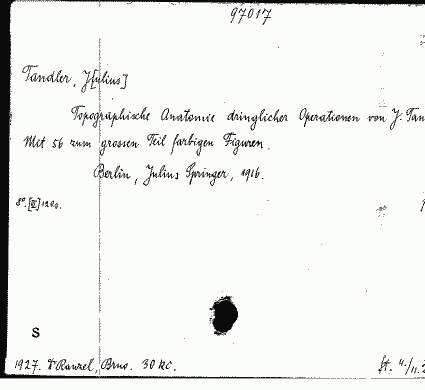 97017
Tandler, J[ulius]
Topographische Anatomie dringlicher Operationen von J. Tan
Mit 56 zum grossen Teil farbigen Figuren.
Berlin, Julius Springer, 1916.
8°. [II] 120 s.
S
1927. Dr Ranzel, Brno. 30 Kč.
St. 4./11.